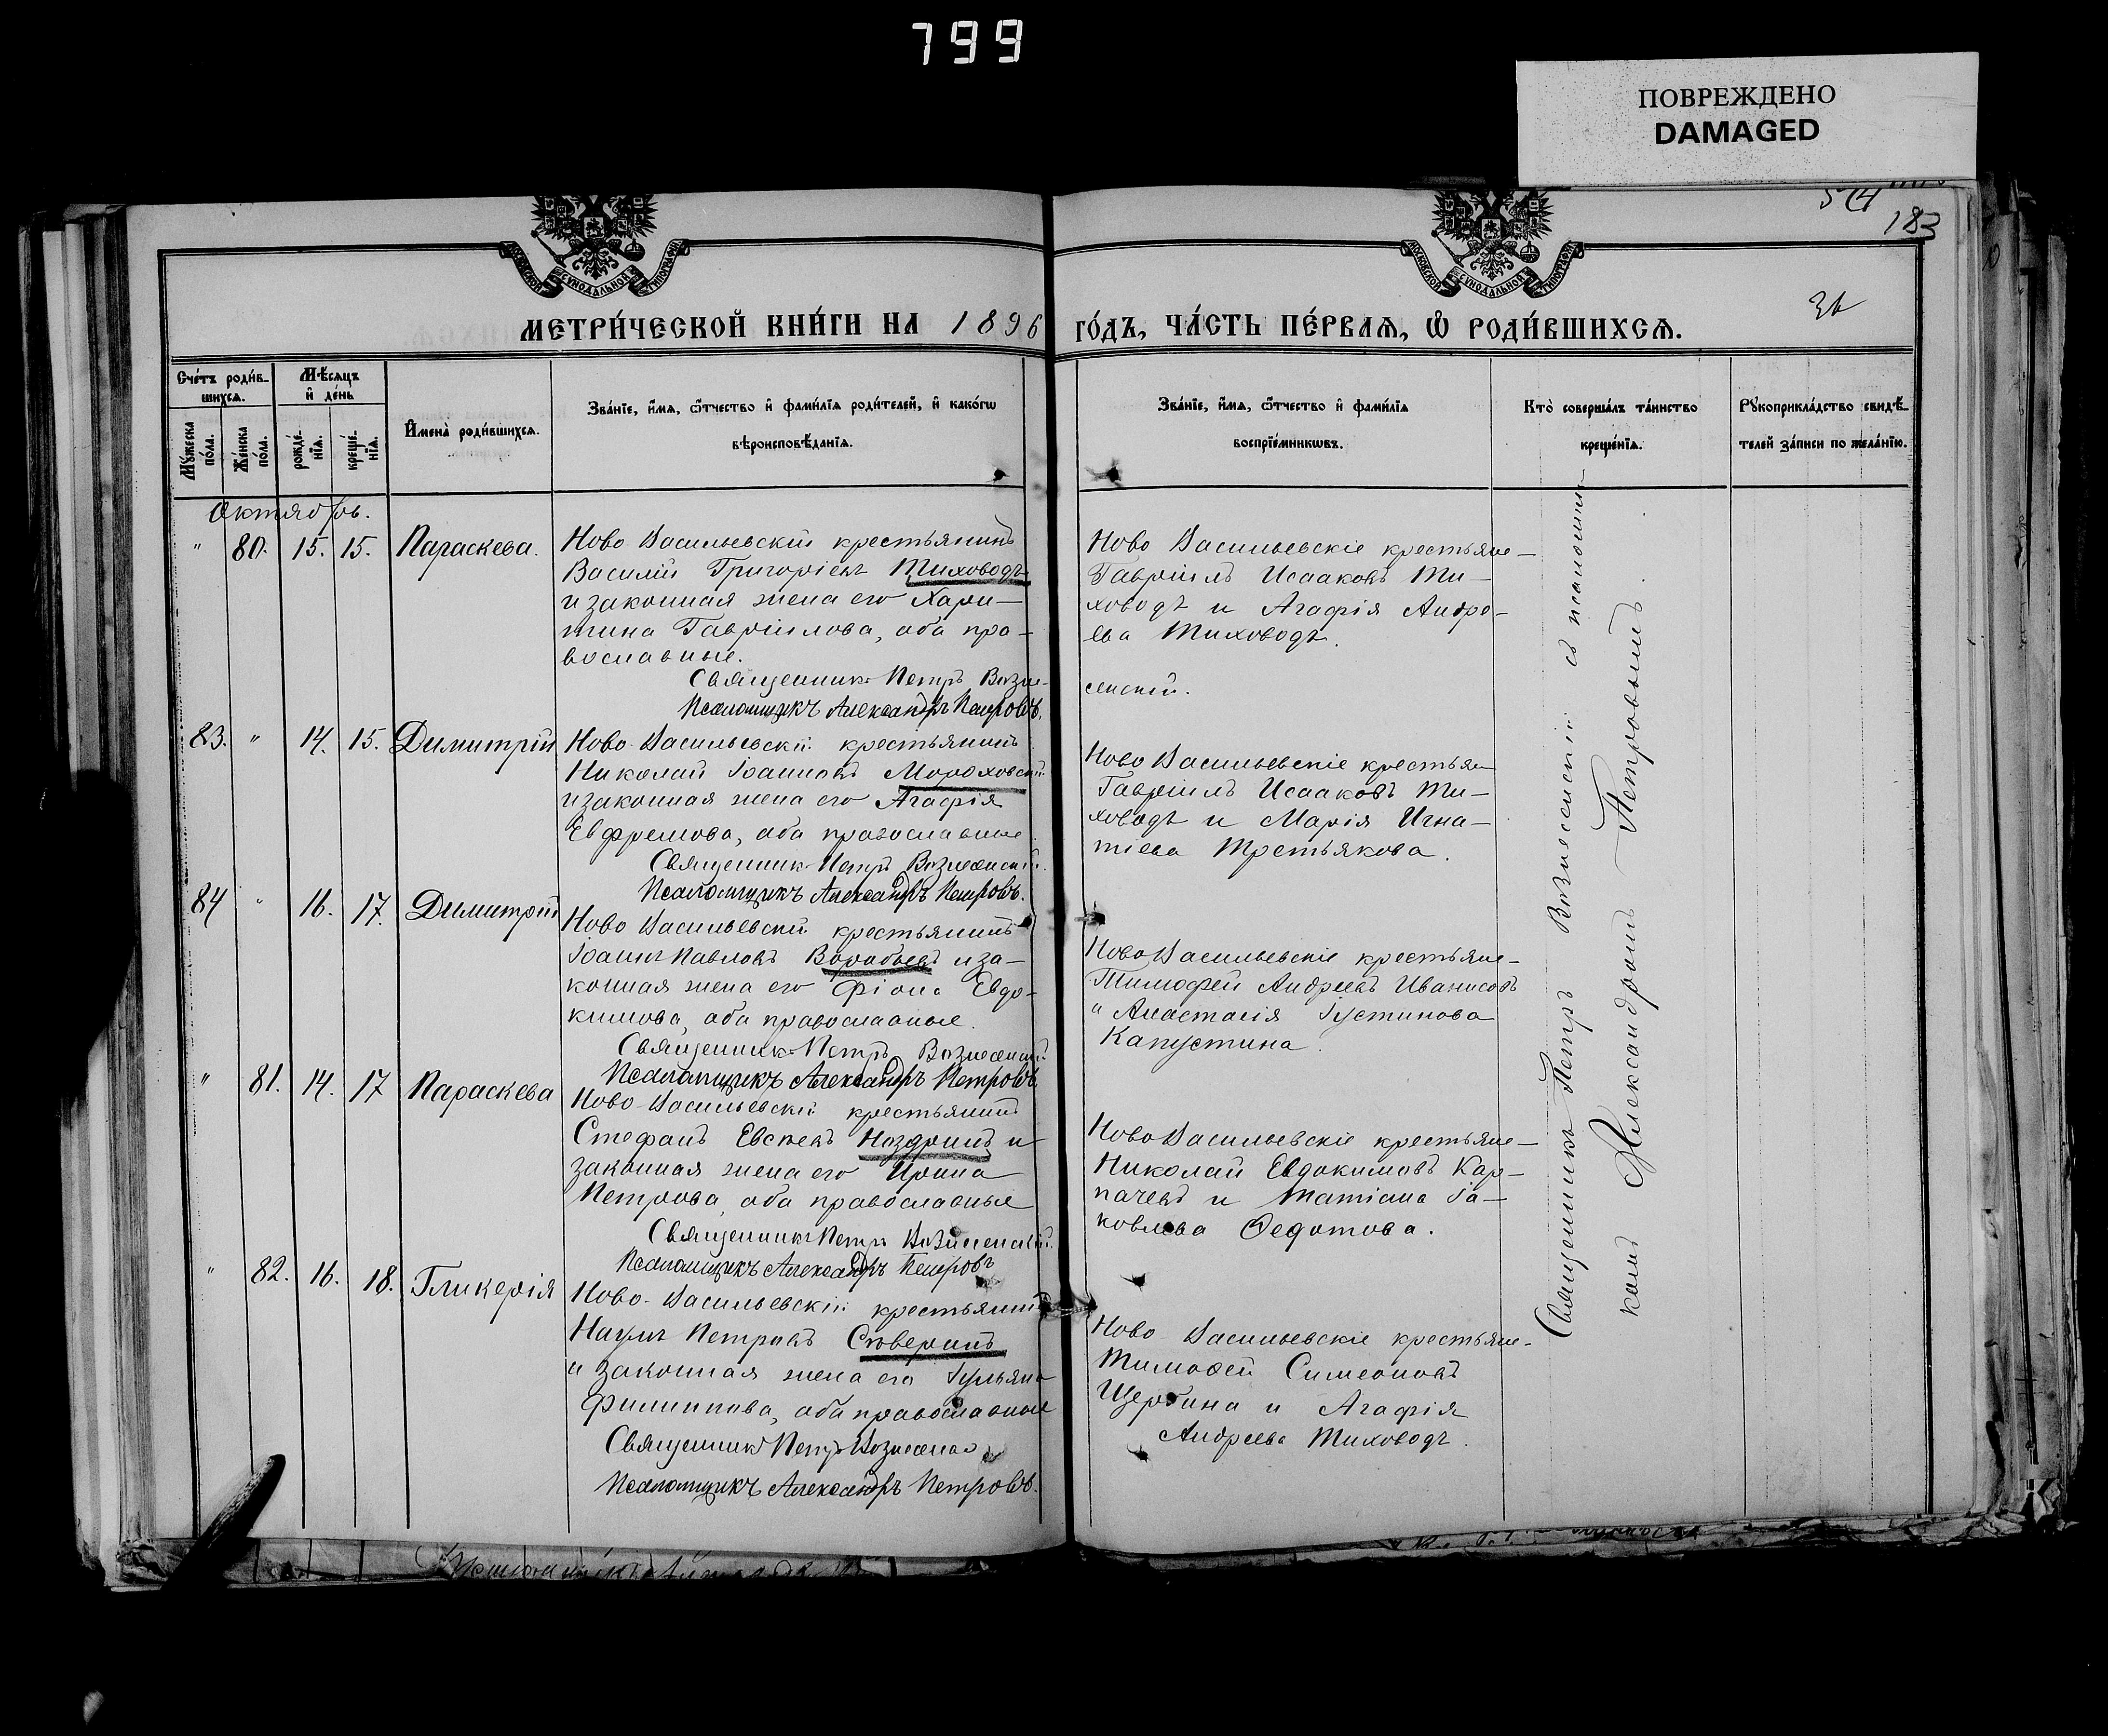 799
ПОВРЕЖДЕНО
DAMAGED
183
МОСКОВСКОЙ СѴНОДАЛЬНОЙ ТИПОГРАФІИ
МОСКОВСКОЙ СѴНОДАЛЬНОЙ ТИПОГРАФІИ
МЕТРИ́ЧЕСКОЙ КНИ́ГИ НА 1896
ГО́ДЪ, ЧА́СТЬ ПЕ́РВАѦ, Ѽ РОДИ́ВШИХСѦ.
Сче́тъ роди́в-
шихсѧ.
Мѣ́сѧцъ
и҆ де́нь
Мꙋ́жеска
по́ла.
Же́нска
по́ла.
рожде́-
нїѧ.
креще́-
нїѧ.
И҆мена̀ роди́вшихсѧ.
Зва́нїе, и҆́мѧ, ѻ҆́тчество и҆ фами́лїѧ роди́телей, и҆ како́гѡ
вѣроисповѣ́данїѧ.
Зва́нїе, и҆́мѧ, ѻ҆́тчество и҆ фами́лїѧ
воспрїе́мникѡвъ.
Кто̀ соверша́лъ та́инство
креще́нїѧ.
Рꙋкоприкла́дство свидѣ́-
телей за́писи по жела́нїю.
Октябрь.
" 80. 15. 15. Параскева.
Ново Васильевскій крестьянинъ
Василій Григоріевъ Тиховодъ
и законная жена его Хари-
тина Гавріилова, оба пра-
вославные.
Священникъ Петръ Возне-
сенскій.
Псаломщикъ Александръ Петровъ.
Ново Васильевскіе крестьяне
Гавріилъ Исааковъ Ти-
ховодъ и Агафія Андре-
ева Тиховодъ.
83. " 14. 15. Димитрій
Ново-Васильевскій крестьянинъ
Николай Іоанновъ Мороховскій
и законная жена его Агафія
Евфремова, оба православные.
Священникъ Петръ Вознесенскій.
Псаломщикъ Александръ Петровъ.
Ново Васильевскіе крестьян
Гавріилъ Исааковъ Ти-
ховодъ и Марія Игна-
тіева Третьякова.
84 " 16. 17. Димитрій
Ново Васильевскій крестьянинъ
Іоаннъ Павловъ Воробьевъ и за-
конная жена его Фіона Евдо-
кимова, оба православные.
Священникъ Петръ Вознесенскій
Псаломщикъ Александръ Петровъ
Ново Васильевскіе крестьяне
Тимофей Андреевъ Иванисовъ
и Анастасія Іустинова
Капустина.
" 81. 14. 17 Параскева
Ново-Васильевскій крестьянинъ
Стефанъ Евсѣевъ Ноздринъ и
законная жена его Ирина
Петрова, оба православные
Священникъ Петръ Вознесенскій.
Псаломщикъ Александръ Петровъ
Ново Васильевскіе крестьяне
Николай Евдокимовъ Кар-
пачевъ и Татіана Іа-
ковлева Ѳедотова.
" 82. 16. 18. Гликерія
Ново-Васильевскій крестьянинъ
Наумъ Петровъ Сѣверинъ
и законная жена его Іульяна
Филиппова, оба православные
Священникъ Петръ Вознесенскій
Псаломщикъ Александръ Петровъ.
Ново Васильевскіе крестьяне
Тимоѳей Симеоновъ
Щербина и Агафія
Андреева Тиховодъ.
Священникъ Петръ Вознесенскій съ псаломщи-
комъ Александромъ Петровымъ.